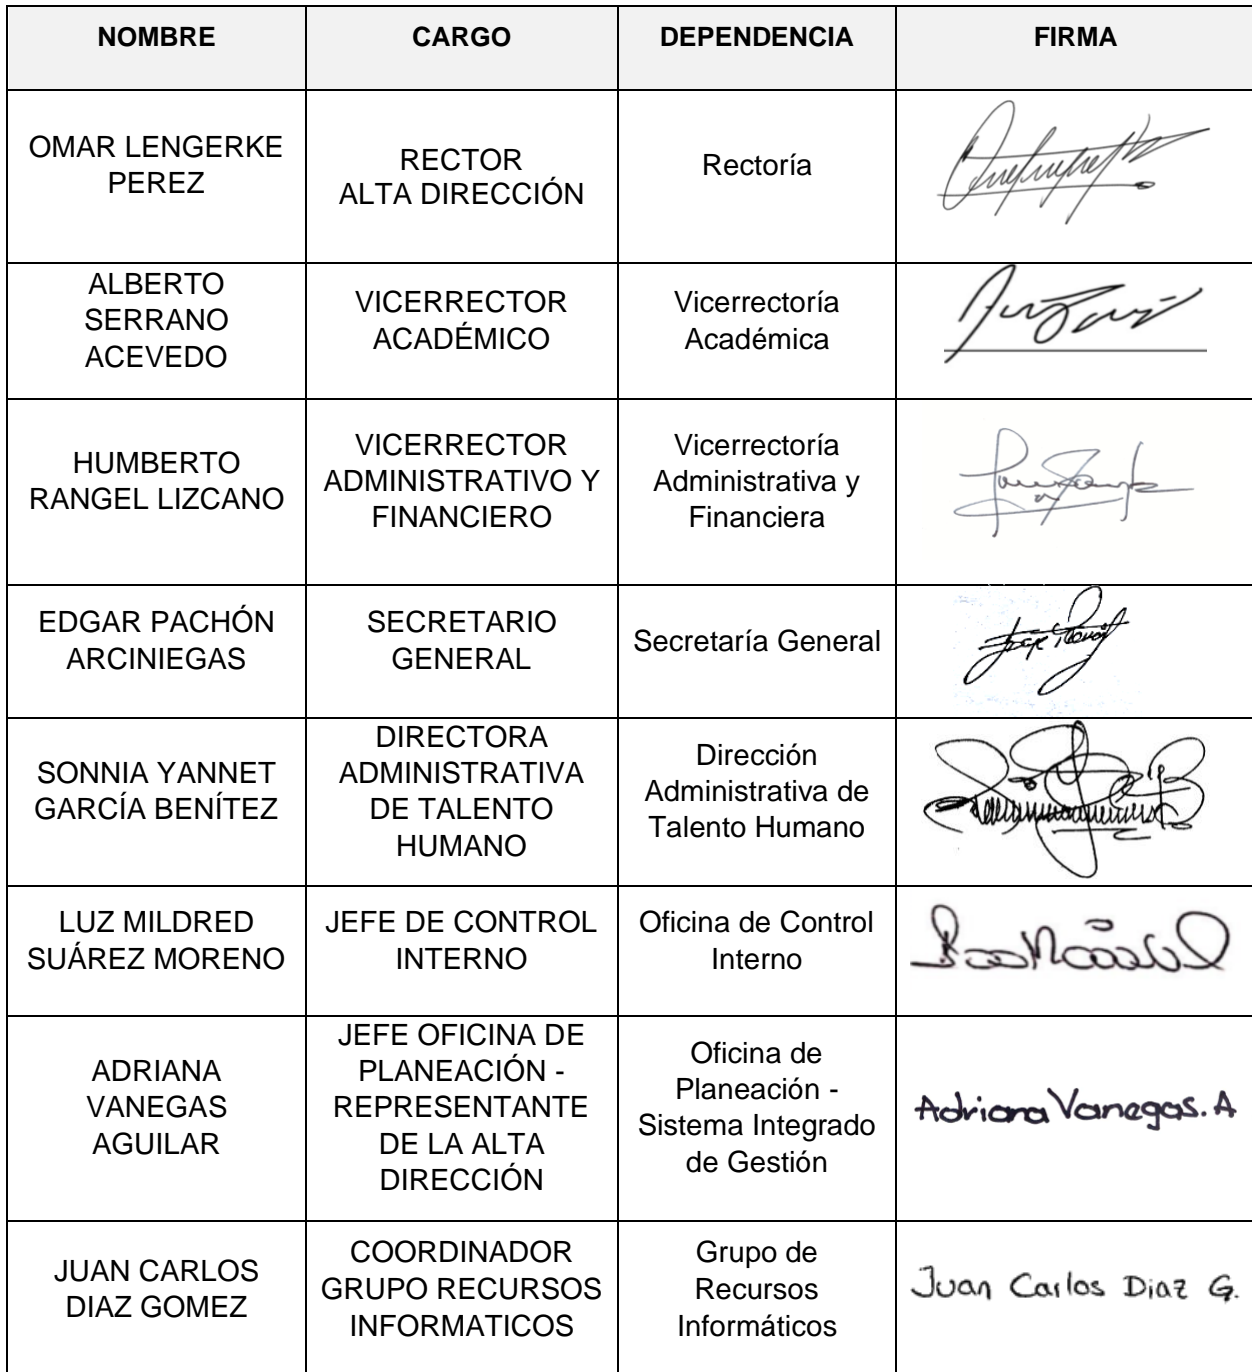 NOMBRE CARGO DEPENDENCIA FIRMA
OMAR LENGERKE
PEREZ
RECTOR
ALTA DIRECCIÓN
Rectoría
ALBERTO
SERRANO
ACEVEDO
VICERRECTOR
ACADÉMICO
Vicerrectoría
Académica
HUMBERTO
RANGEL LIZCANO
VICERRECTOR
ADMINISTRATIVO Y
FINANCIERO
Vicerrectoría
Administrativa y
Financiera
EDGAR PACHÓN
ARCINIEGAS
SECRETARIO
GENERAL
Secretaría General
SONNIA YANNET
GARCÍA BENÍTEZ
DIRECTORA
ADMINISTRATIVA
DE TALENTO
HUMANO
Dirección
Administrativa de
Talento Humano
LUZ MILDRED
SUÁREZ MORENO
JEFE DE CONTROL
INTERNO
Oficina de Control
Interno
ADRIANA
VANEGAS
AGUILAR
JEFE OFICINA DE
PLANEACIÓN -
REPRESENTANTE
DE LA ALTA
DIRECCIÓN
Oficina de
Planeación -
Sistema Integrado
de Gestión
Adriana Vanegas. A
JUAN CARLOS
DIAZ GOMEZ
COORDINADOR
GRUPO RECURSOS
INFORMATICOS
Grupo de
Recursos
Informáticos
Juan Carlos Diaz G.